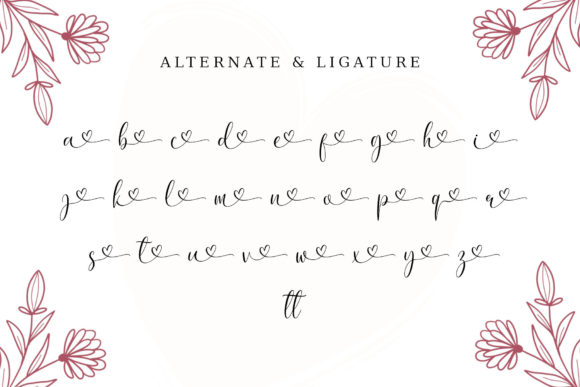 ALTERNATE & LIGATURE
a b c d e f g h i
j k l m n o p q r
s t u v w x y z
tt